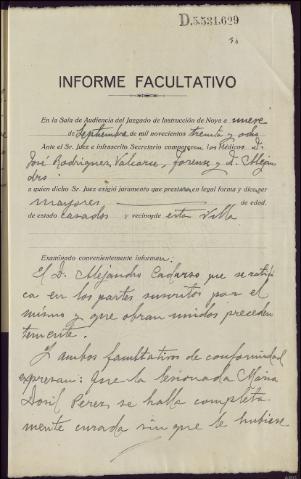 D.5.531.629
INFORME FACULTATIVO
En la Sala de Audiencia del Juzgado de Instrucción de Noya a nueve
de Septiembre de mil novecientos treinta y ocho
Ante el Sr. Juez e infrascrito Secretario comparecen, los Médicos D.
José Rodriguez Valcarce, forense y D. Alejan
dro
a quien dicho Sr. Juez exigió juramento que prestan en legal forma y dice ser
mayores de edad,
de estado casados y vecinos de esta Villa
Examinado convenientemente informan:
El D. Alejandro Cadarso que se ratifi
ca en los partes suscritos por el
mismo y que obran unidos preceden
temente.
Y ambos facultativos de conformidad
expresan: Que la lesionada Maria
Dosil Perez se halla completa
mente curada sin que le hubiese